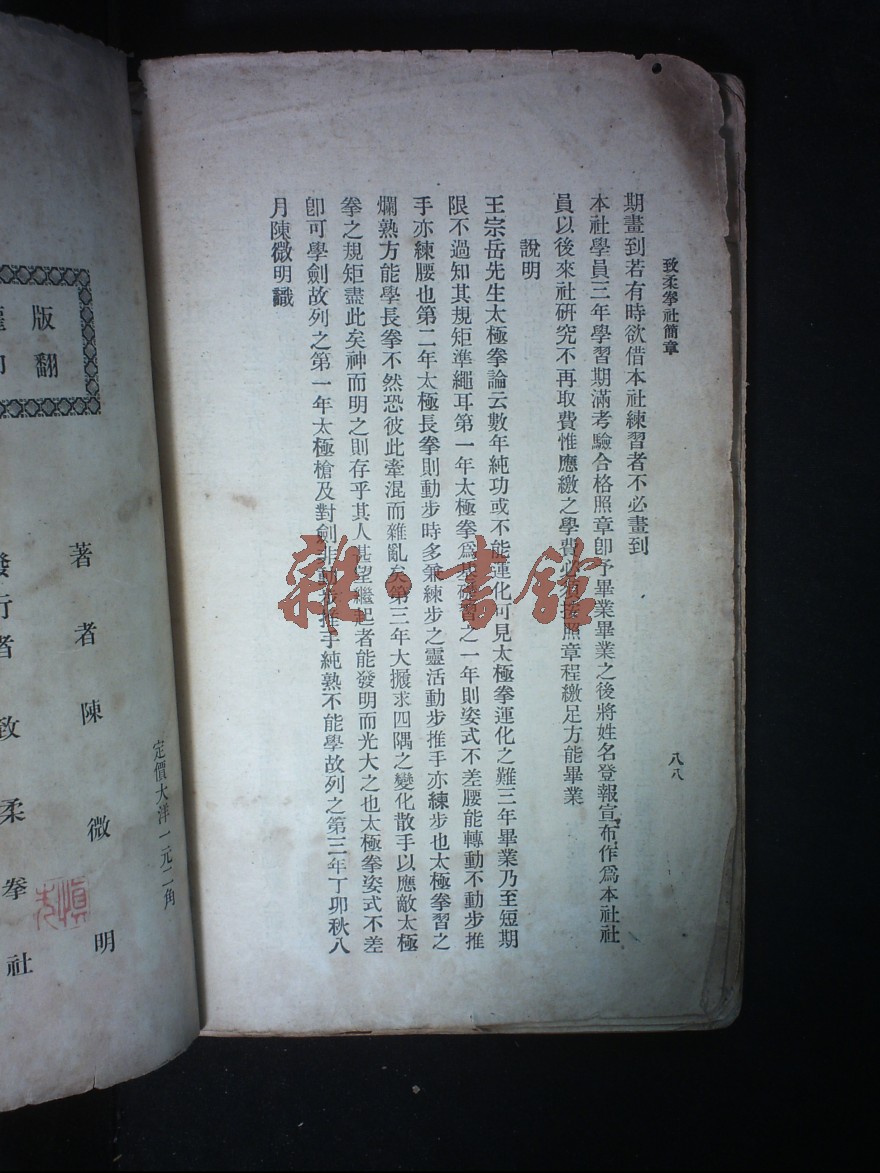 致柔拳社簡章
八八
期畫到若有時欲借本社練習者不必畫到
本社學員三年學習期滿考驗合格照章卽予畢業畢業之後將姓名登報宣布作爲本社社
員以後來社研究不再取費惟應繳之學費必須按照章程繳足方能畢業
說明
王宗岳先生太極拳論云數年純功或不能運化可見太極拳運化之難三年畢業乃至短期
限不過知其規矩準繩耳第一年太極拳爲基礎習之一年則姿式不差腰能轉動不動步推
手亦練腰也第二年太極長拳則動步時多兼練步之靈活動步推手亦練步也太極拳習之
爛熟方能學長拳不然恐彼此牽混而雜亂矣第三年大握求四隅之變化散手以應敵太極
拳之規矩盡此矣神而明之則存乎其人甚望繼起者能發明而光大之也太極拳姿式不差
卽可學劍故列之第一年太極槍及對劍非動步推手純熟不能學故列之第三年丁卯秋八
月陳微明識
版
翻
定價大洋一元二角
著者陳微明
發行者致柔拳社
雜·書館